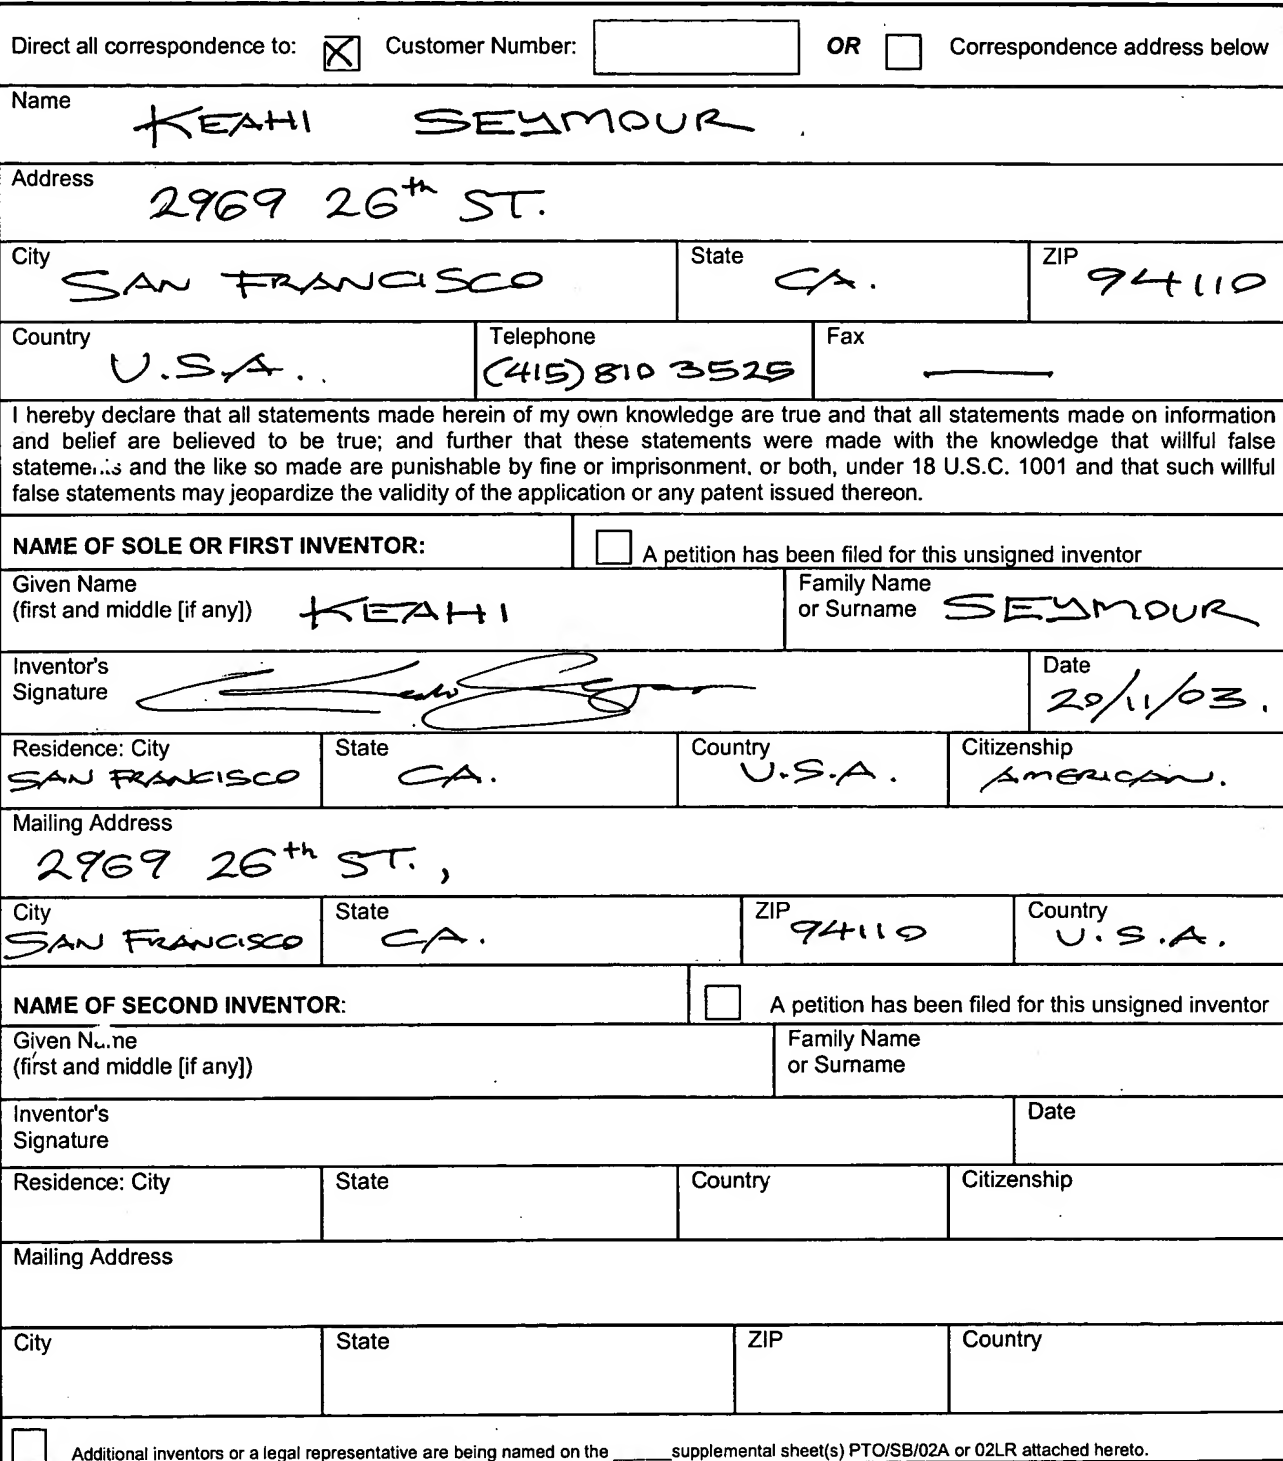 Direct all correspondence to: Customer Number: OR Correspondence address below
Name KEAHI SEYMOUR
Address 2969 26th ST.
City SAN FRANCISCO State CA. ZIP 94110
Country U.S.A. Telephone (415) 810 3525 Fax —
I hereby declare that all statements made herein of my own knowledge are true and that all statements made on information
and belief are believed to be true; and further that these statements were made with the knowledge that willful false
statements and the like so made are punishable by fine or imprisonment, or both, under 18 U.S.C. 1001 and that such willful
false statements may jeopardize the validity of the application or any patent issued thereon.
NAME OF SOLE OR FIRST INVENTOR: A petition has been filed for this unsigned inventor
Given Name Family Name
(first and middle [if any]) KEAHI or Surname SEYMOUR
Inventor's Date
Signature 20/11/03.
Residence: City State Country Citizenship
SAN FRANCISCO CA. U.S.A. AMERICAN.
Mailing Address
2969 26th ST.,
City State ZIP Country
SAN FRANCISCO CA. 94110 U.S.A.
NAME OF SECOND INVENTOR: A petition has been filed for this unsigned inventor
Given Name Family Name
(first and middle [if any]) or Surname
Inventor's Date
Signature
Residence: City State Country Citizenship
Mailing Address
City State ZIP Country
Additional inventors or a legal representative are being named on the ______supplemental sheet(s) PTO/SB/02A or 02LR attached hereto.